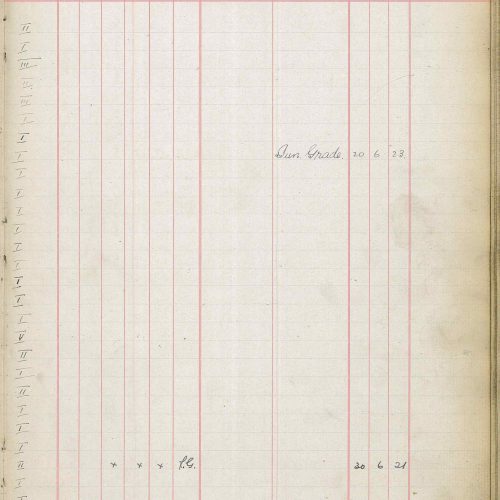 II
I
III
II
III
I
I
I
I
I
I
I
I
I
I
I
I
V
II
I
II
I
I
I
II
I
I
Jun. Grade. 20 6 23
x x x P.G. 20 6 21